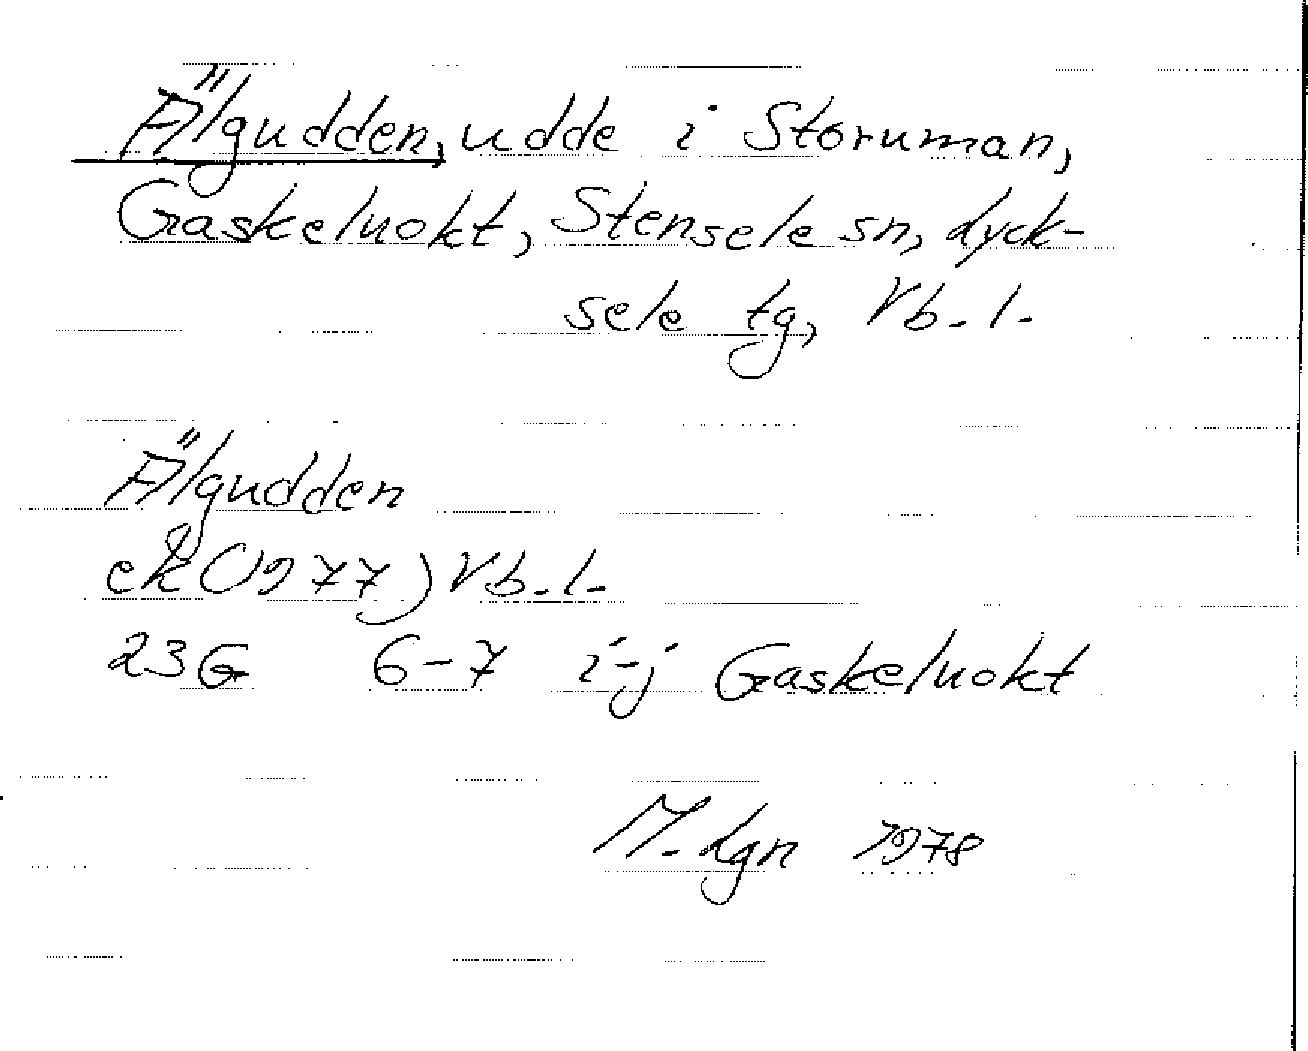 Älgudden, udde i Storuman,
Gaskeluokt, Stensele sn, Lyck-
sele tg, Vb. l.
Älgudden
ek (1977) Vb. l.
23G 6-7 i-j Gaskeluokt
M. Lgn 1978